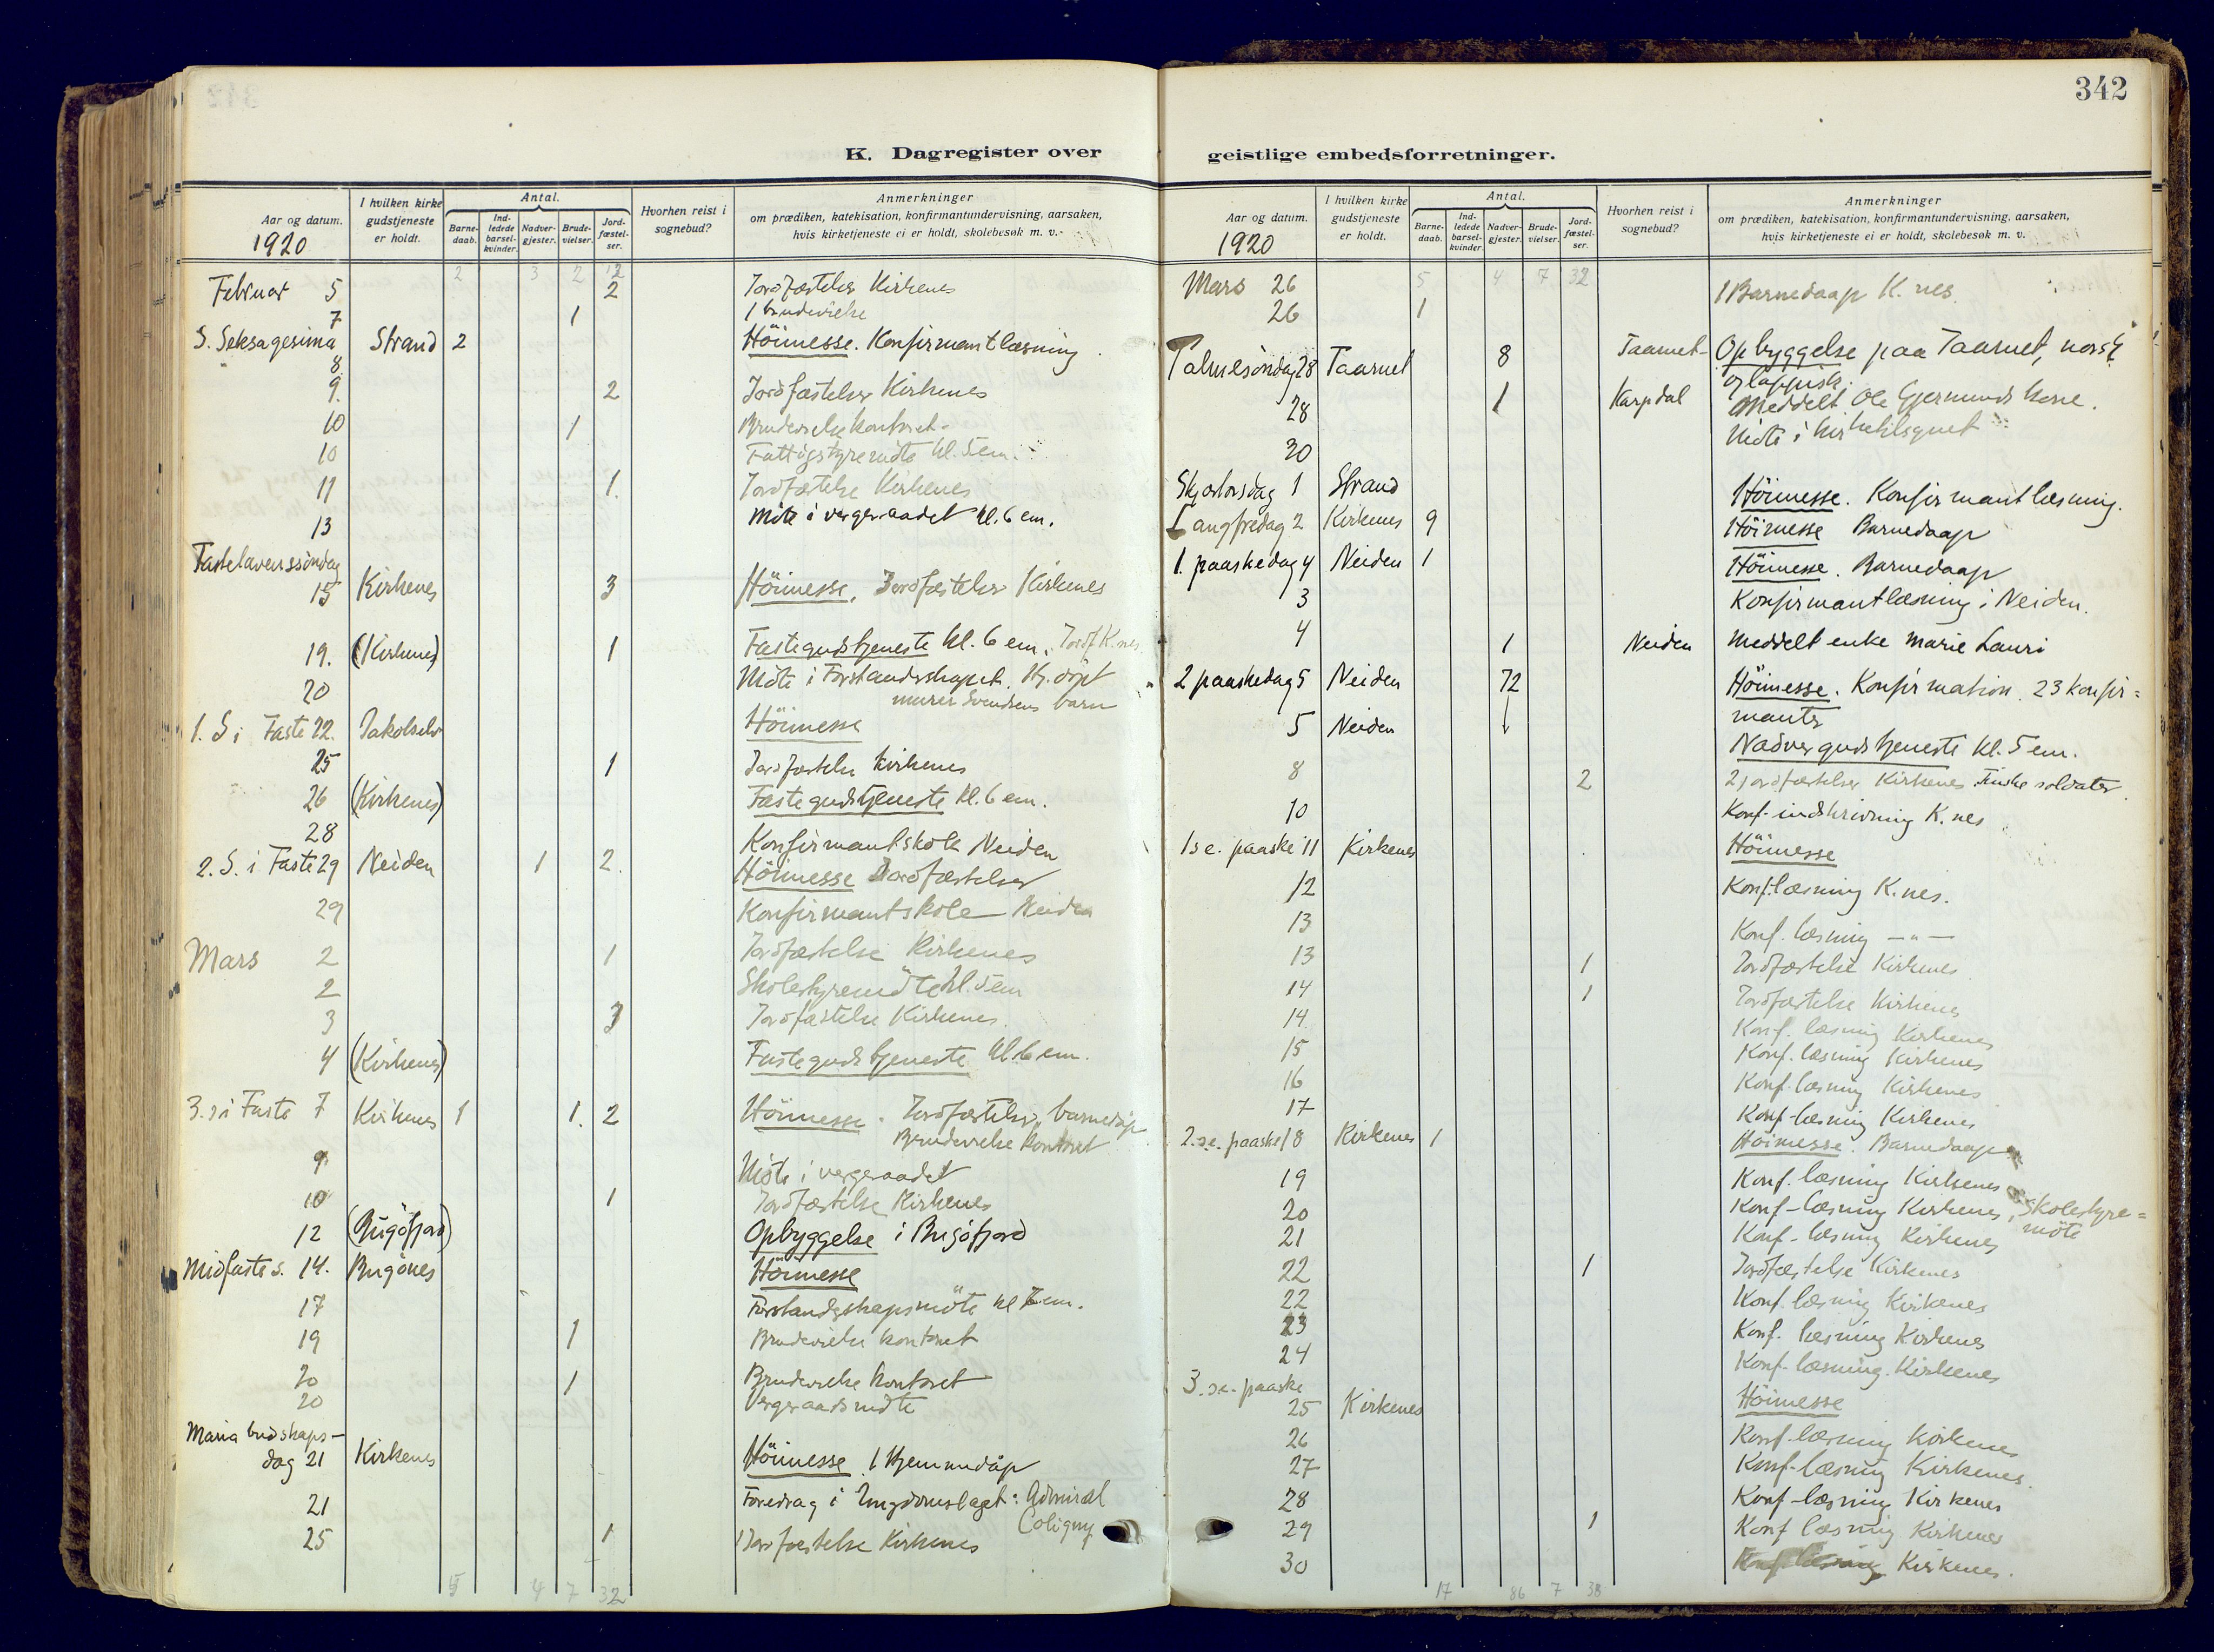 342
K. Dagregister over
geistlige embedsforretninger.
Aar og datum.
1920
I hvilken kirke gudstjeneste er holdt.
Antal.
Barne-daab.
Ind-ledede barsel-kvinder.
Nadver-gjester.
Brude-vielser.
Jord-fæstel-ser.
Hvorhen reist i sognebud?
Anmerkninger
om prædiken, katekisation, konfirmantundervisning, aarsaken,
hvis kirketjeneste ei er holdt, skolebesøk m. v.
2 3 2 12
Februar 5 2 Jordfæstelser Kirkenes
7 1 1 brudevielse
S. Seksagesima 8 Strand 2 Höimesse. Konfirmantlæsning
9. 2 Jordfæstelser Kirkenes
10 1 Brudevielse kontoret.
10 Fattigstyremöte kl. 5 em.
11 1. Jordfæstelse Kirkenes
13 Möte i vergeraadet kl. 6 em.
Fastelavenssöndag
15 Kirkenes 3 Höimesse. Jordfæstelser Kirkenes
19. (Kirkenes) 1 Fastegudstjeneste kl. 6 em. Jordf K.nes
20 Möte i Forstanderskapet. Hj. döpt
murer Svendsens barn
1. S i Faste 22. Jakobselv Höimesse
25 1 Jordfæstelse Kirkenes
26 (Kirkenes) Fastegudstjeneste kl. 6 em.
28 Konfirmantskole Neiden
2. S. i Faste 29 Neiden 1 2. Höimesse Jordfæstelser
29 Konfirmantskole Neiden
Mars 2 1 Jordfæstelse Kirkenes
2 Skolestyremöte kl. 5 em
3 3 Jordfæstelse Kirkenes.
4 (Kirkenes) Fastegudstjeneste kl. 6 em.
3. s i Faste 7 Kirkenes 1 1. 2 Höimesse. Jordfæstelser, barnedåp
Brudevielse kontoret
9 Möte i vergeraadet
10 1 Jordfæstelse Kirkenes
12 (Bugöfjord) Opbyggelse i Bugöfjord
Midfaste s. 14. Bugönes Höimesse
17 Forstanderskapsmöte kl 6 em.
19 1 Brudevielse kontoret
20 1 Brudevielse kontoret
20 Vergeraadsmöte
Maria budskaps-
dag 21 Kirkenes Höimesse. 1 Hjemmedåp
21 Foredrag i Ungdomslaget: Admiral
Coligny
25 1 1 Jordfæstelse Kirkenes
5 4 7 32
Aar og datum.
1920
I hvilken kirke gudstjeneste er holdt.
Antal.
Barne-daab.
Ind-ledede barsel-kvinder.
Nadver-gjester.
Brude-vielser.
Jord-fæstel-ser.
Hvorhen reist i sognebud?
Anmerkninger
om prædiken, katekisation, konfirmantundervisning, aarsaken,
hvis kirketjeneste ei er holdt, skolebesøk m. v.
5 4 7 32
Mars 26 1 Barnedaap K. nes.
26 1
Palmesöndag 28 Taarnet 8 Taarnet- Opbyggelse paa Taarnet, norsk
og lappisk.
28 1 Karpdal Meddelt Ole Gjermunds kone.
30 Möte i
Skjærtorsdag 1 Strand Höimesse. Konfirmantlæsning.
Langfredag 2 Kirkenes 9 Höimesse Barnedaap
1. paaskedag 4 Neiden 1 Höimesse. Barnedaap
3 Konfirmantlæsning i Neiden.
4 1 Neiden Meddelt enke Marie Lauri
2 paaskedag 5 Neiden 72 Höimesse. Konfirmation. 23 konfir=
manter
5 Neiden Nadvergudstjeneste kl. 5 em.
8 2 2 jordfæstelser Kirkenes. Finske soldater.
10 Konf-indskrivning K.nes
1 s e. paaske 11 Kirkenes Höimesse
12 Konf.læsning K.nes.
13 Konf. læsning -"-
13 1 Jordfæstelse Kirkenes
14 1 Jordfæstelse Kirkenes
14. Konf. læsning Kirkenes
15 Konf. læsning Kirkenes
16 Konf-læsning Kirkenes
17 Konf-læsning Kirkenes
2. s.e. paaske 18 Kirkenes 1 Höimesse. Barnedaap
19 Konf. læsning Kirkenes
20 Konf-læsning Kirkenes, Skolestyre=
möte
21 Konf-læsning Kirkenes
22 1 Jordfæstelse Kirkenes
22 Konf. læsning Kirkenes
23 Konf. læsning Kirkenes
24 Konf-læsning. Kirkenes
3. s.e. paaske
25 Kirkenes Höimesse
26 Konf-læsning Kirkenes
27 Konf-læsning Kirkenes.
28 Konf-læsning Kirkenes
29 1 Konf læsning Kirkenes
30 Konf læsning Kirkenes.
17 86 7 38